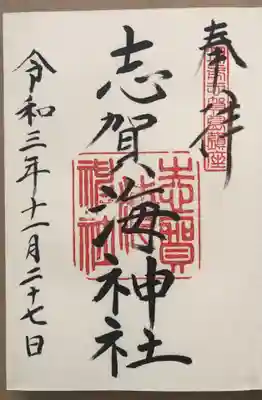 奉拝
志賀海神社
令和三年十一月二十七日
志賀海神社